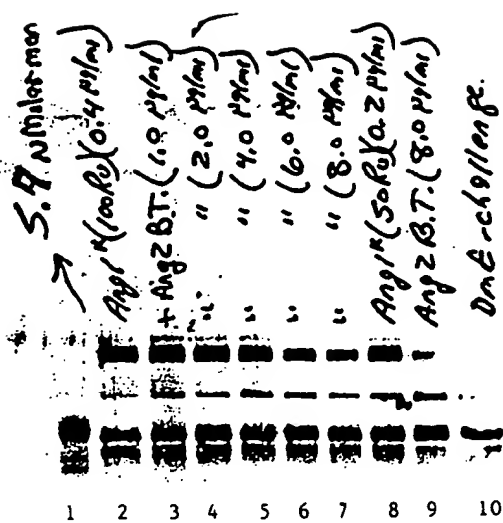 5.9 nMolar mon
Ang1* (100RU)(0.4 µg/ml)
+ Ang2 B.T. (1.0 µg/ml)
" " (2.0 µg/ml)
" " (4.0 µg/ml)
" " (6.0 µg/ml)
" " (8.0 µg/ml)
Ang1* (50RU)(0.2 µg/ml)
Ang2 B.T. (8.0 µg/ml)
DME-challenge.
1 2 3 4 5 6 7 8 9 10